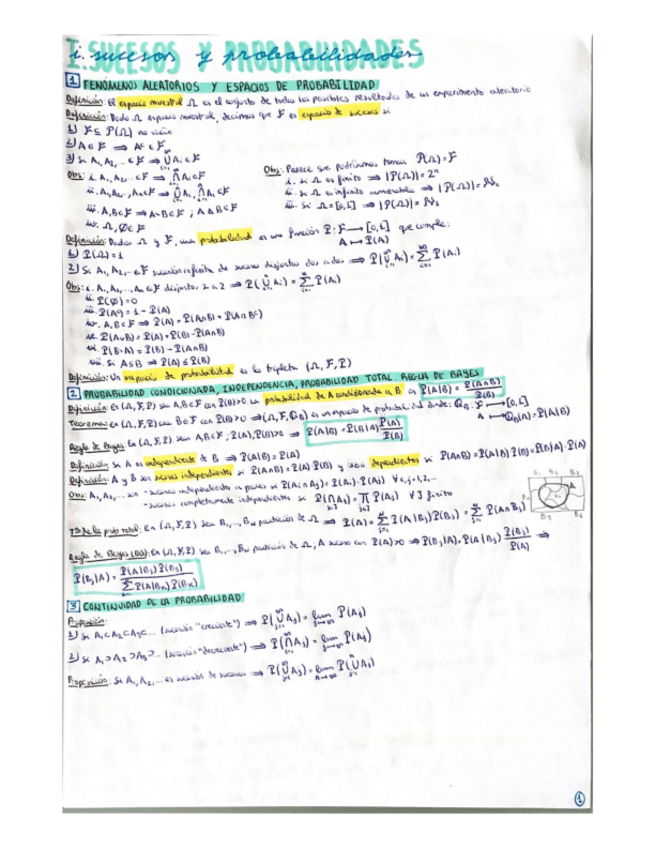 I. SUCESOS Y PROBABILIDADES
i. sucesos y probabilidades
1 FENÓMENOS ALEATORIOS Y ESPACIOS DE PROBABILIDAD
Definición: El espacio muestral Ω es el conjunto de todos los posibles resultados de un experimento aleatorio
Definición: Dado Ω espacio muestral, decimos que F es espacio de sucesos si
1) F ⊆ P(Ω) no vacío
2) A∈F ⟹ Aᶜ∈F
3) Si A₁, A₂,... ∈F ⟹ ⋃Aᵢ∈F
Obs: i. A₁, A₂,... ∈F ⟹ ⋂Aᵢ∈F
ii. A₁, A₂,..., Aₙ∈F ⟹ ⋃Aᵢ, ⋂Aᵢ ∈F
iii. A,B∈F ⟹ A∖B∈F ; A∆B∈F
iv. Ω, ∅∈F
Obs: Parece que podríamos tomar P(Ω)=F
i. si Ω es finito ⟹ |P(Ω)| = 2ⁿ
ii. si Ω es infinito numerable ⟹ |P(Ω)| =
iii. Si Ω=[0,1] ⟹ |P(Ω)| =
Definición: Dados Ω y F, una probabilidad es una función P: F ⟶ [0,1] que cumple:
A ↦ P(A)
1) P(Ω)=1
2) Si A₁, A₂,... ∈F sucesión infinita de sucesos disjuntos dos a dos ⟹ P(⋃Aᵢ) = ∑P(Aᵢ)
Obs: i. A₁, A₂,..., Aₙ∈F disjuntos 2 a 2 ⟹ P(⋃Aᵢ) = ∑P(Aᵢ)
ii. P(∅)=0
iii. P(Aᶜ) = 1 - P(A)
iv. A,B∈F ⟹ P(A) = P(A∩B)+P(A∩Bᶜ)
v. P(A∪B) = P(A)+P(B)-P(A∩B)
vi. P(B∖A) = P(B) - P(A∩B)
vii. Si A⊆B ⟹ P(A) ≤ P(B)
Definición: Un espacio de probabilidad es la tripleta (Ω, F, P)
2 PROBABILIDAD CONDICIONADA, INDEPENDENCIA, PROBABILIDAD TOTAL, REGLA DE BAYES
Definición: En (Ω,F,P) sean A,B∈F con P(B)>0. La probabilidad de A condicionada a B es P(A|B) = P(A∩B)/P(B)
Teorema: En (Ω,F,P) sea B∈F con P(B)>0 ⟹ (Ω,F,Q_B) es un espacio de probabilidad donde: Q_B: F ⟶ [0,1]
A ↦ Q_B(A)=P(A|B)
Regla de Bayes: En (Ω,F,P) sean A,B∈F, P(A),P(B)>0 ⟹ P(A|B) = P(B|A) P(A)/P(B)
Definición: Si A es independiente de B ⟹ P(A|B) = P(A)
Definición: A y B son sucesos independientes si P(A∩B)=P(A)·P(B) y son dependientes si P(A∩B) = P(A|B)·P(B)=P(B|A)·P(A)
Obs: A₁, A₂,... son - sucesos independientes a pares si P(Aᵢ∩Aⱼ) = P(Aᵢ)·P(Aⱼ) ∀i,j=1,2,...
- sucesos completamente independientes si P(⋂Aⱼ) = ∏P(Aⱼ) ∀J finito
A
Tª de la prob. total: En (Ω,F,P) sea B₁,..., Bₙ partición de Ω ⟹ P(A) = ∑P(A|Bⱼ)P(Bⱼ) = ∑P(A∩Bⱼ)
Regla de Bayes: En (Ω,F,P) sea B₁,..., Bₙ partición de Ω, A suceso con P(A)>0 ⟹ P(Bⱼ|A) = P(A|Bⱼ) P(Bⱼ)/P(A) ⟹
P(Bⱼ|A) = P(A|Bⱼ)P(Bⱼ)/∑P(A|Bₖ)P(Bₖ)
3 CONTINUIDAD DE LA PROBABILIDAD
Proposición:
1) Si A₁⊂A₂⊂A₃⊂... (sucesión "creciente") ⟹ P(⋃Aⱼ) = lim P(Aⱼ)
2) Si A₁⊃A₂⊃A₃⊃... (sucesión "decreciente") ⟹ P(⋂Aⱼ) = lim P(Aⱼ)
Proposición: Si A₁, A₂,... es sucesión de sucesos ⟹ P(⋃Aⱼ) = lim P(⋃Aⱼ)
1